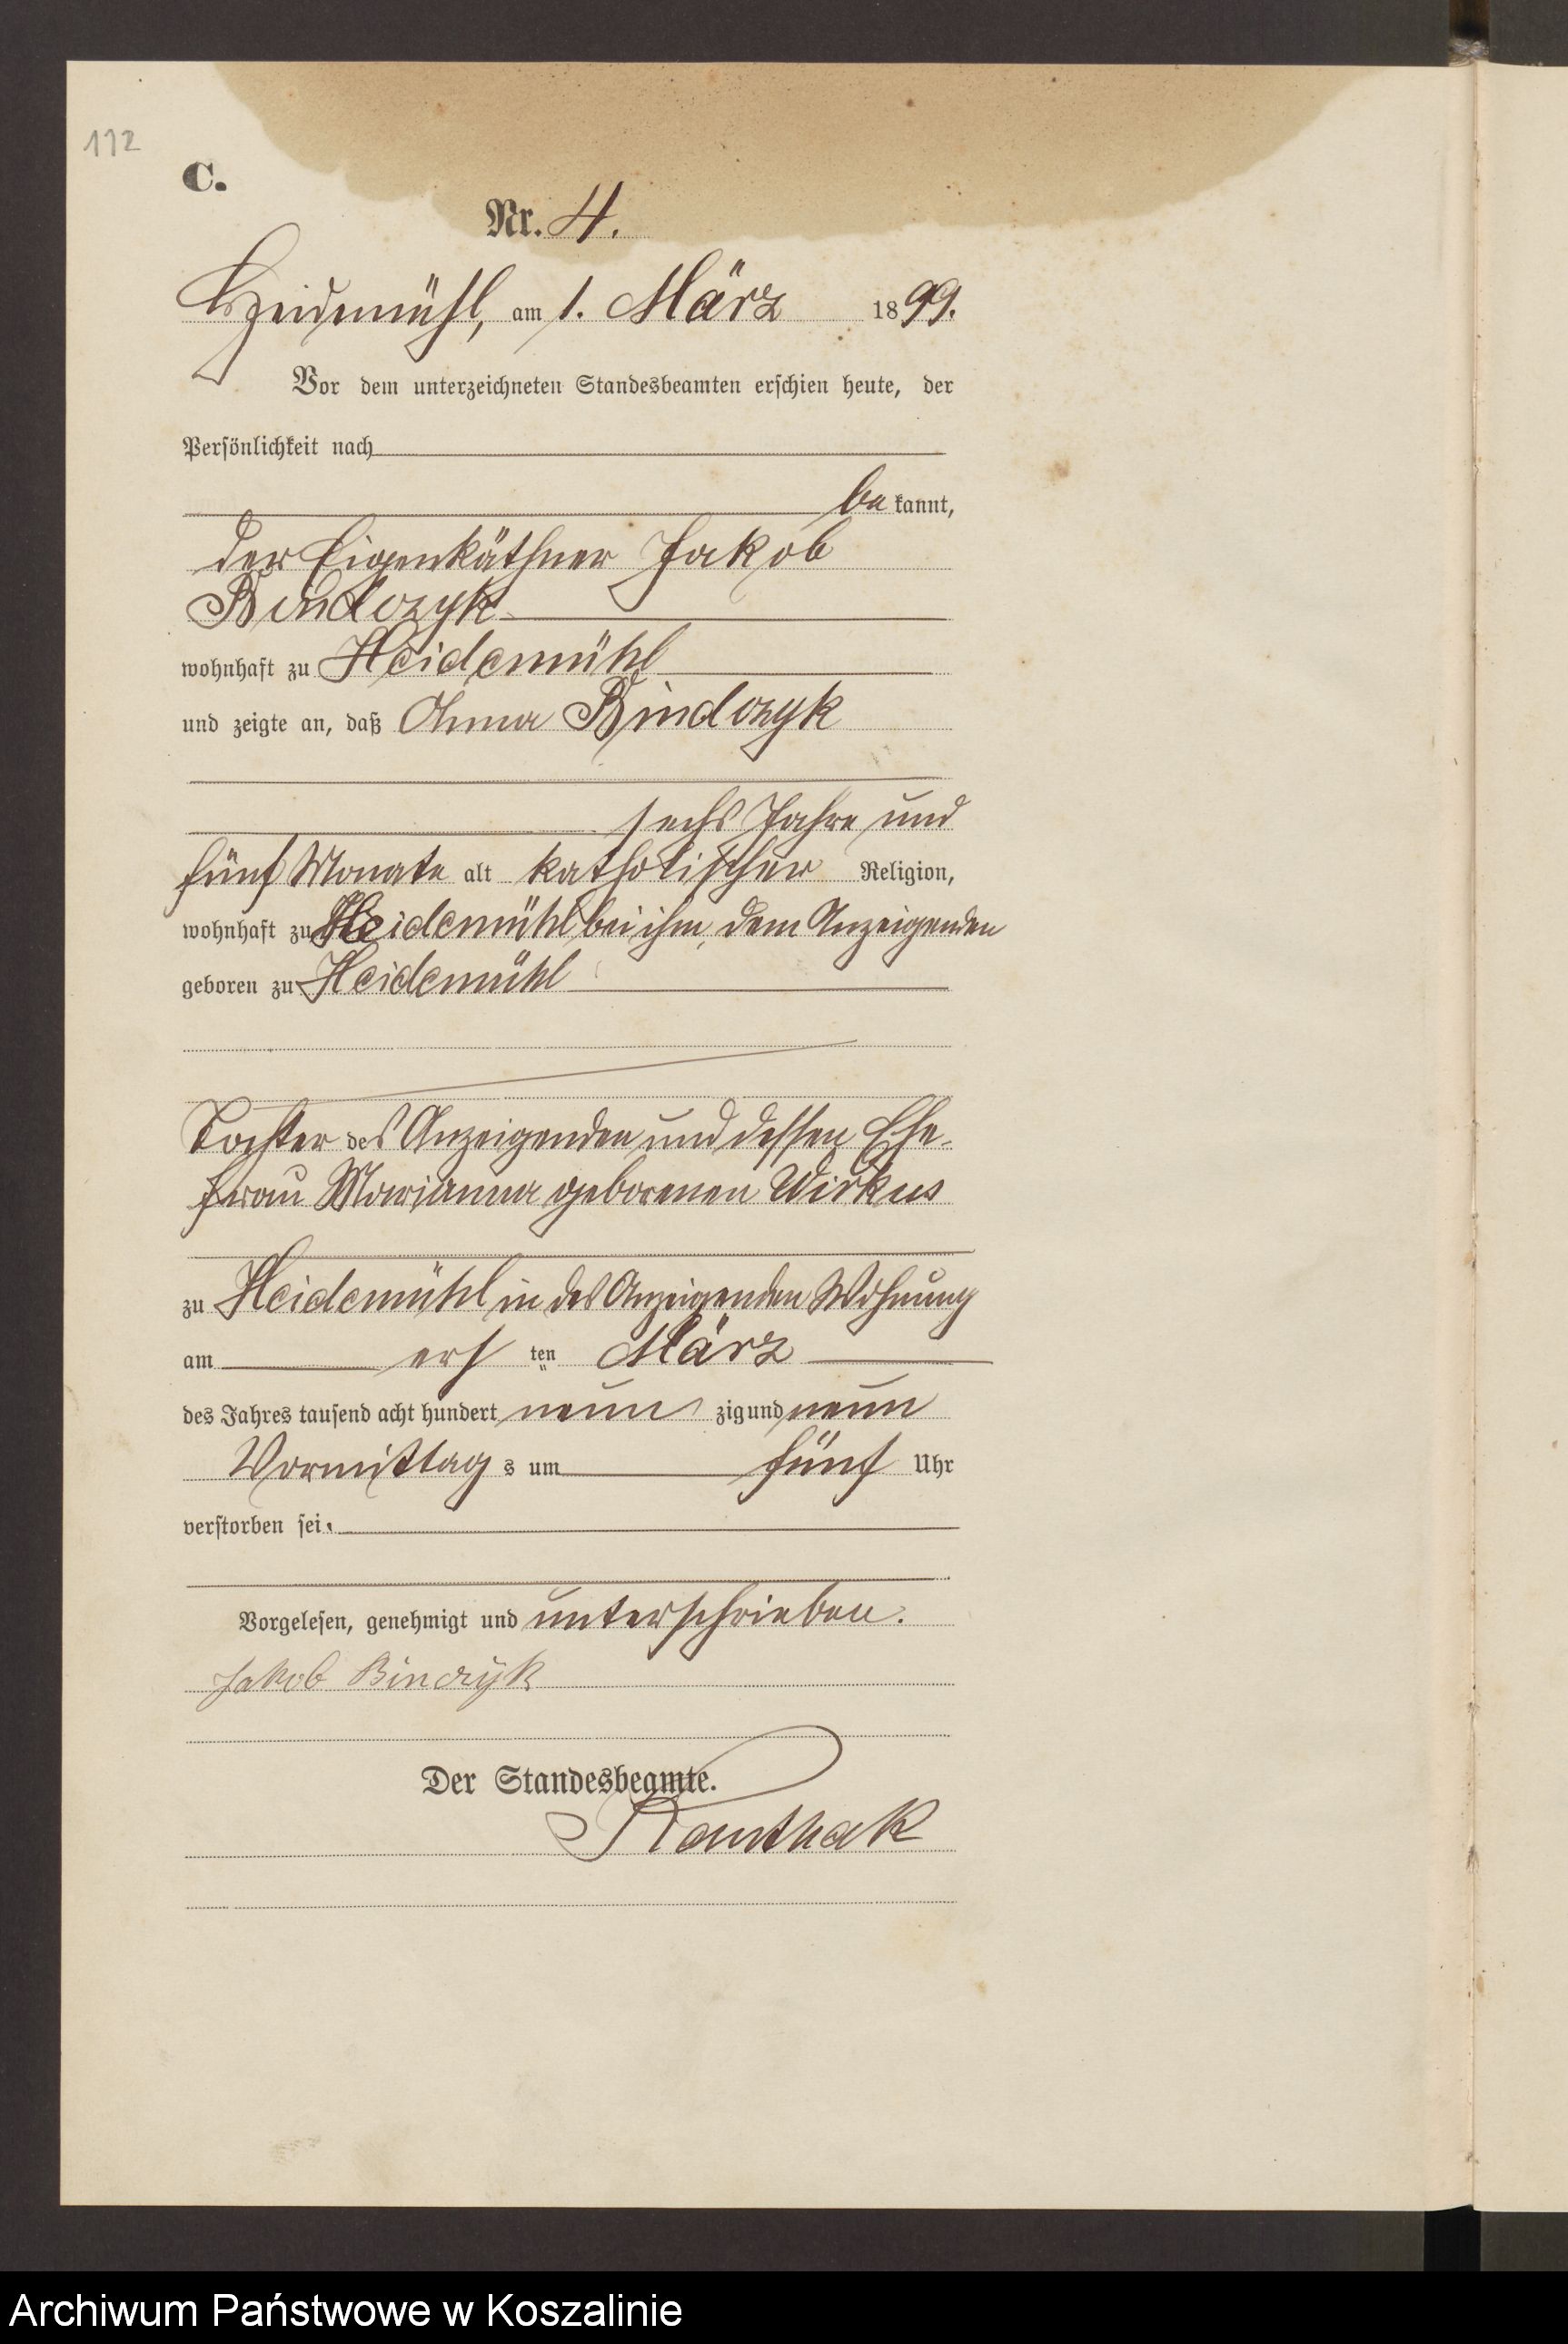 112
C.
Nr. 4.
Heidemühl, am 1. März 1899.
Vor dem unterzeichneten Standesbeamten erschien heute, der
Persönlichkeit nach
bekannt,
der Eigenkäthner Jakob
Bindczyk
wohnhaft zu Heidemühl
und zeigte an, daß Anna Bindczyk
sechs Jahre und
fünf Monate alt katholischer Religion,
wohnhaft zu Heidemühl bei ihm, dem Anzeigenden
geboren zu Heidemühl
Tochter des Anzeigenden und dessen Ehe-
frau Marianna geborenen Wirkus
zu Heidemühl in des Anzeigenden Wohnung
am ersten März
des Jahres tausend acht hundert neunzig und neun
Vormittags um fünf Uhr
verstorben sei.
Vorgelesen, genehmigt und unterschrieben.
Jakob Binczyk
Der Standesbeamte.
Kanthak
Archiwum Państwowe w Koszalinie